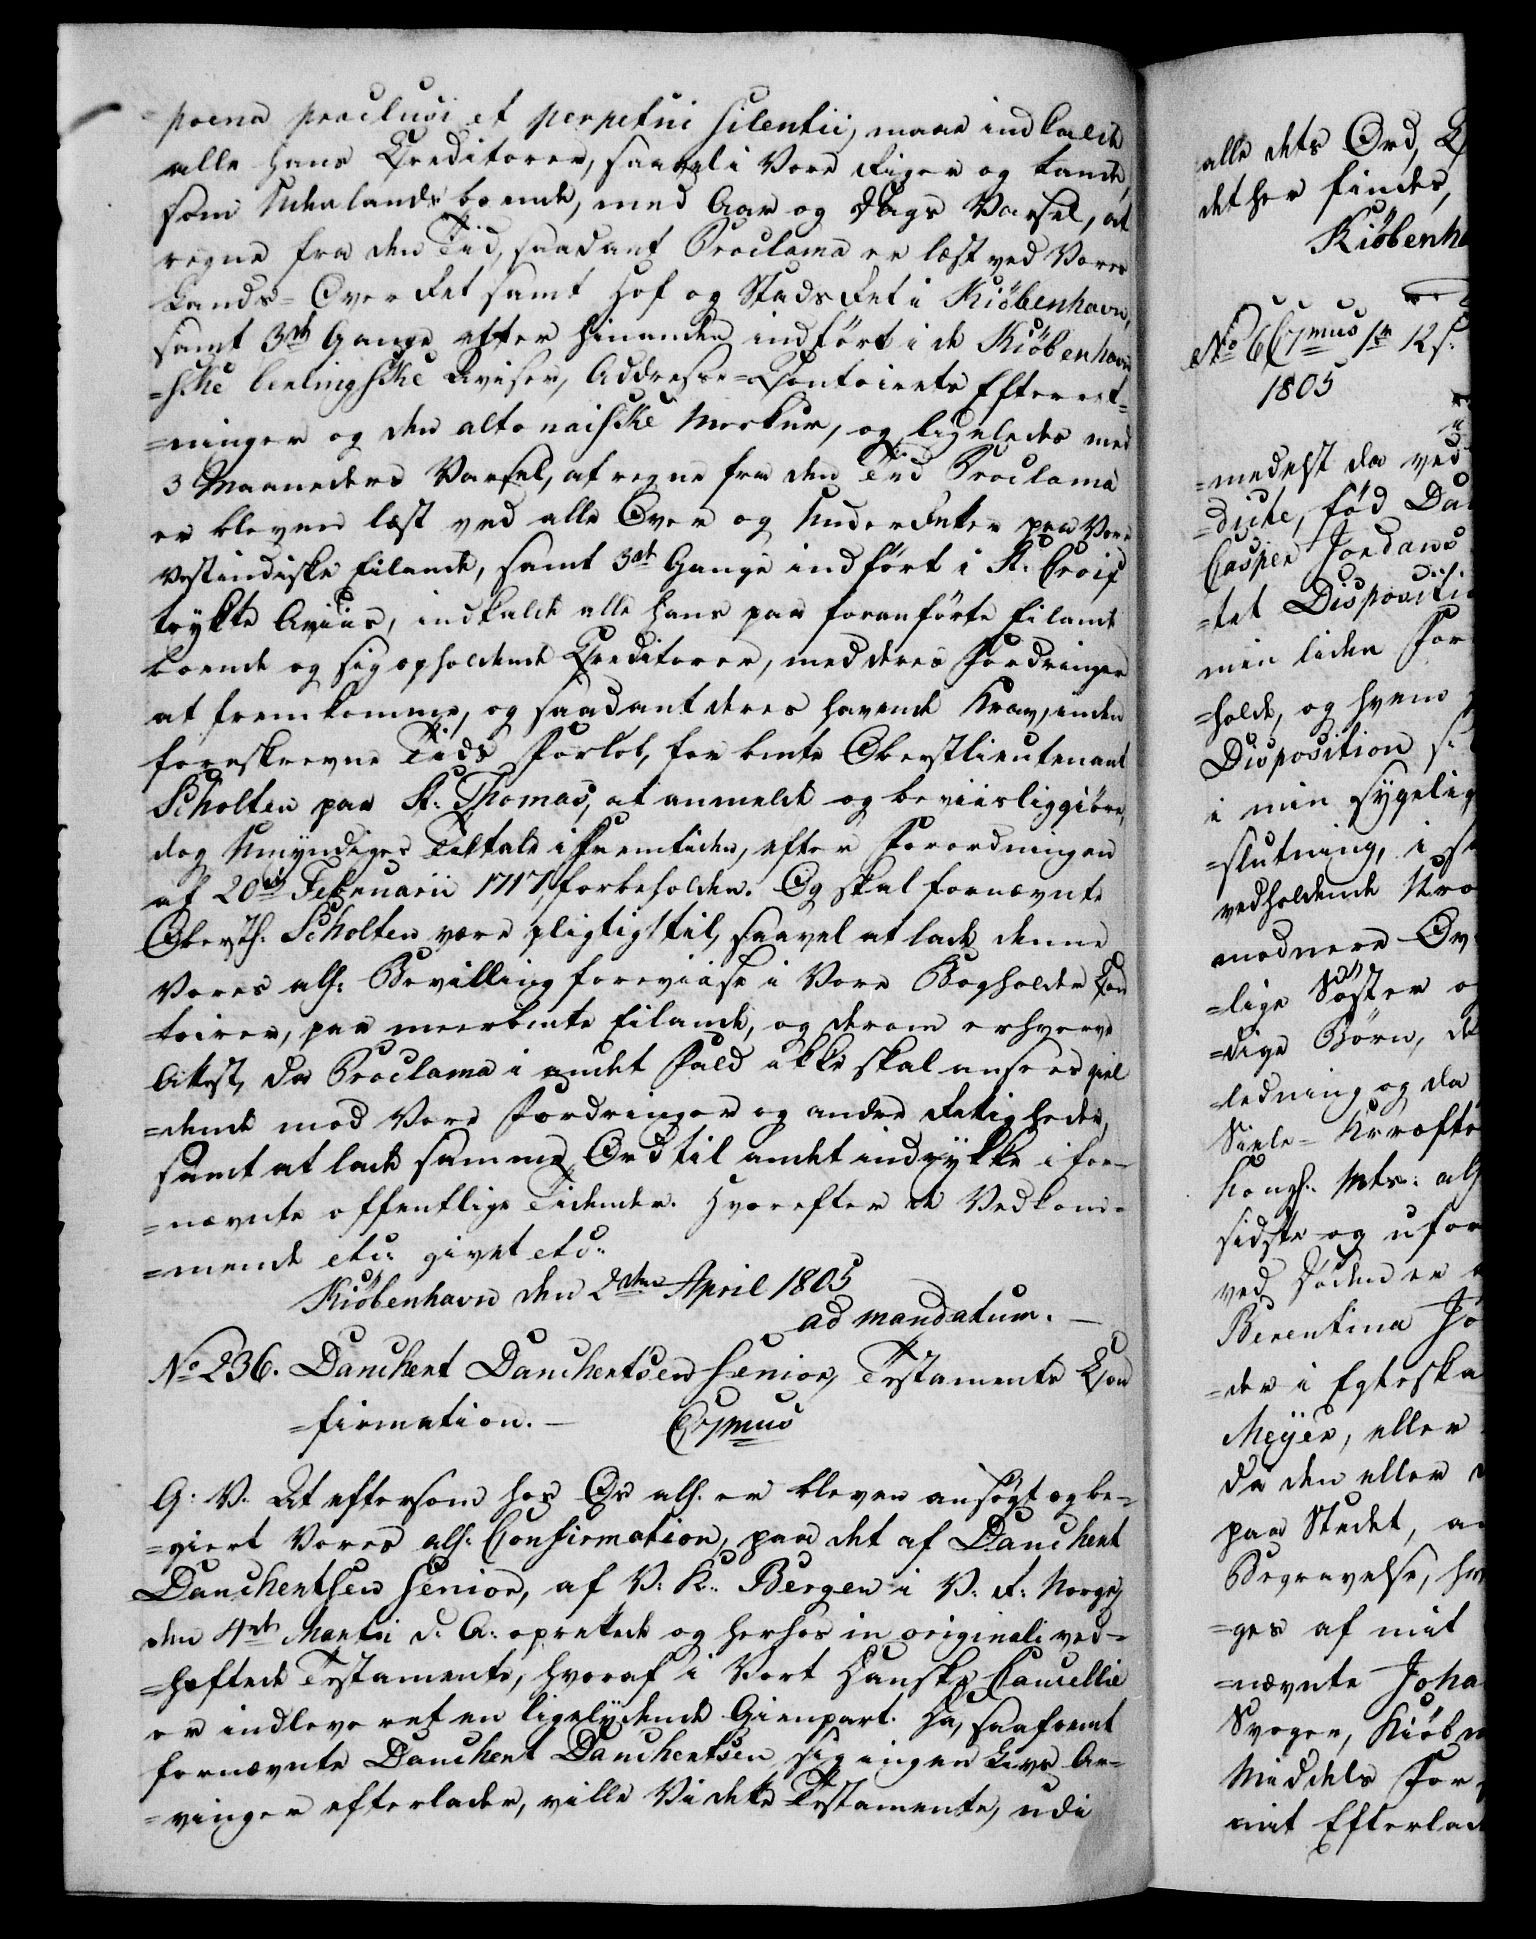 =poena præclusi et perpetui silentii, maae indkalde
alle hans Creditorer, saavel i Vore Riger og Lande,
som Udenlands boende, med Aar og Dags Varsel, at
regne fra den Tid, saadant Proclama er læst ved Vores
Lands-Over Ret samt Hof og Stads Ret i Kiöbenhavn,
samt 3de Gange efter hinanden indført i de Kiöbenhavn
=ske berlingske Aviser, Addresse-Contoirets Efterret=
=ninger og den altonaiske Merkur, og ligeledes med
3 Maaneders Varsel, at regne fra den Tid Proclama
er bleven læst ved alle Over og Under Retter paa Vore
vestindiske Eilande, samt 3de Gange indført i St. Croix
trykte Aviis, indkalde alle hans paa foranførte Eilande
boende og sig opholdende Creditorer, med deres Fordringer
at fremkomme, og saadant deres havende Krav, inden
foreskrevne Tids Forløb, for bemte Oberstlieutenant
Scholten paa St. Thomas, at anmelde og beviisliggiöre,
dog Umyndiges Tiltale i Fremtiden, efter Forordningen
af 20de Februarii 1717, forbeholden. Og skal fornævnte
Oberstl. Scholten være pligtig til, saavel at lade denne
Vores all: Bevilling foreviise i Vore Bogholder Con
toirer, paa meerbemte Eilande, og derom erhverve
Attest, da Proclama i andet Fald ikke skal ansees giel
=dende mod Vore Fordringer og andre Rettigheder,
samt at lade samme, Ord til andet indrykke i for=
=nævnte offentlige Tidender. Hvorefter de Vedkom=
=mende etc: givet etc:
Kiöbenhavn den 2den April 1805
ad mandatum. —
No 236. Danchert Danchertsen Senior, Testaments Con
=firmation. — C7mus
G: V. At eftersom hos Os all. er bleven ansøgt og be=
=giert Vores all: Confirmation, paa det af Danchert
Danchertsen Senior, af V: K: Bergen i V. R: Norge,
den 4de Martii d. A: oprettede og herhos in originali ved=
=heftede Testamente, hvoraf i Vort Danske Cancellie
er indleveret en ligelydende Gienpart. Da, saafremt
fornævnte Danchert Danchertsen sig ingen Livs Ar=
=vinger efterlader, ville Vi dette Testamente, udi
alle dets Ord,
det her findes,
Kiöbenha
No 6 C7mus 12 s.
1805
=medelst da ved
=dicte, född Da
Casper Jordans
=tet Dispositi
min liden For
=holde, og hvem
Disposition s.
i min sygelig
=slutning, i
vedholdende
modnere Ov
=lige Söster og
=dige Börn, de
=ledning og da
Siele-Kræfte
Kongl: Mts: all
sidste og ufor
ved Döden er
Berentina Jo
=der i Egteska
Meÿer, eller
da den eller
paa Stedet,
Begravelse, hv
=ges af mit
=nævnte Joha
Svoger, Kiöbm
Middels For
mit Efterlad